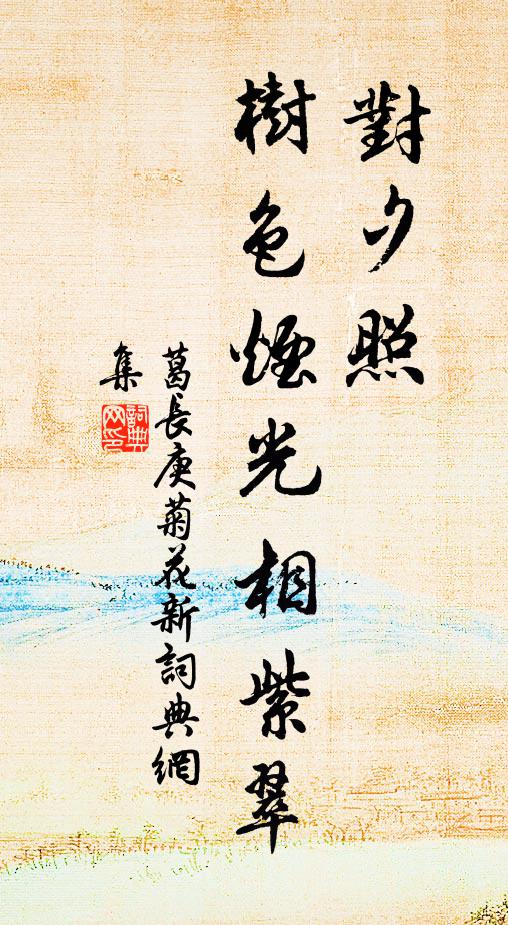 對夕照
樹色煙光相紫翠
葛長庚菊花新詞典網
集
詞典
网印